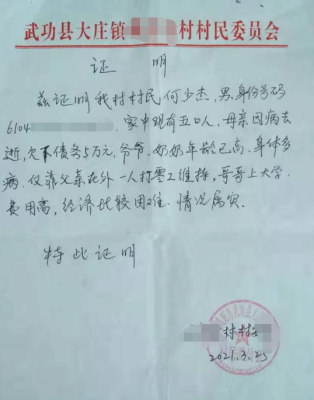 武功县大庄镇 村村民委员会
证 明
兹证明我村村民何少杰,男,身份号码
6104 ,家中现有五口人,母亲因病去
逝,欠下债务5万元,爷爷、奶奶年龄已高,身体多
病,仅靠父亲在外一人打零工维持,哥哥上大学,
费用高,经济比较困难,情况属实。
特此证明
村村
2021.3.25